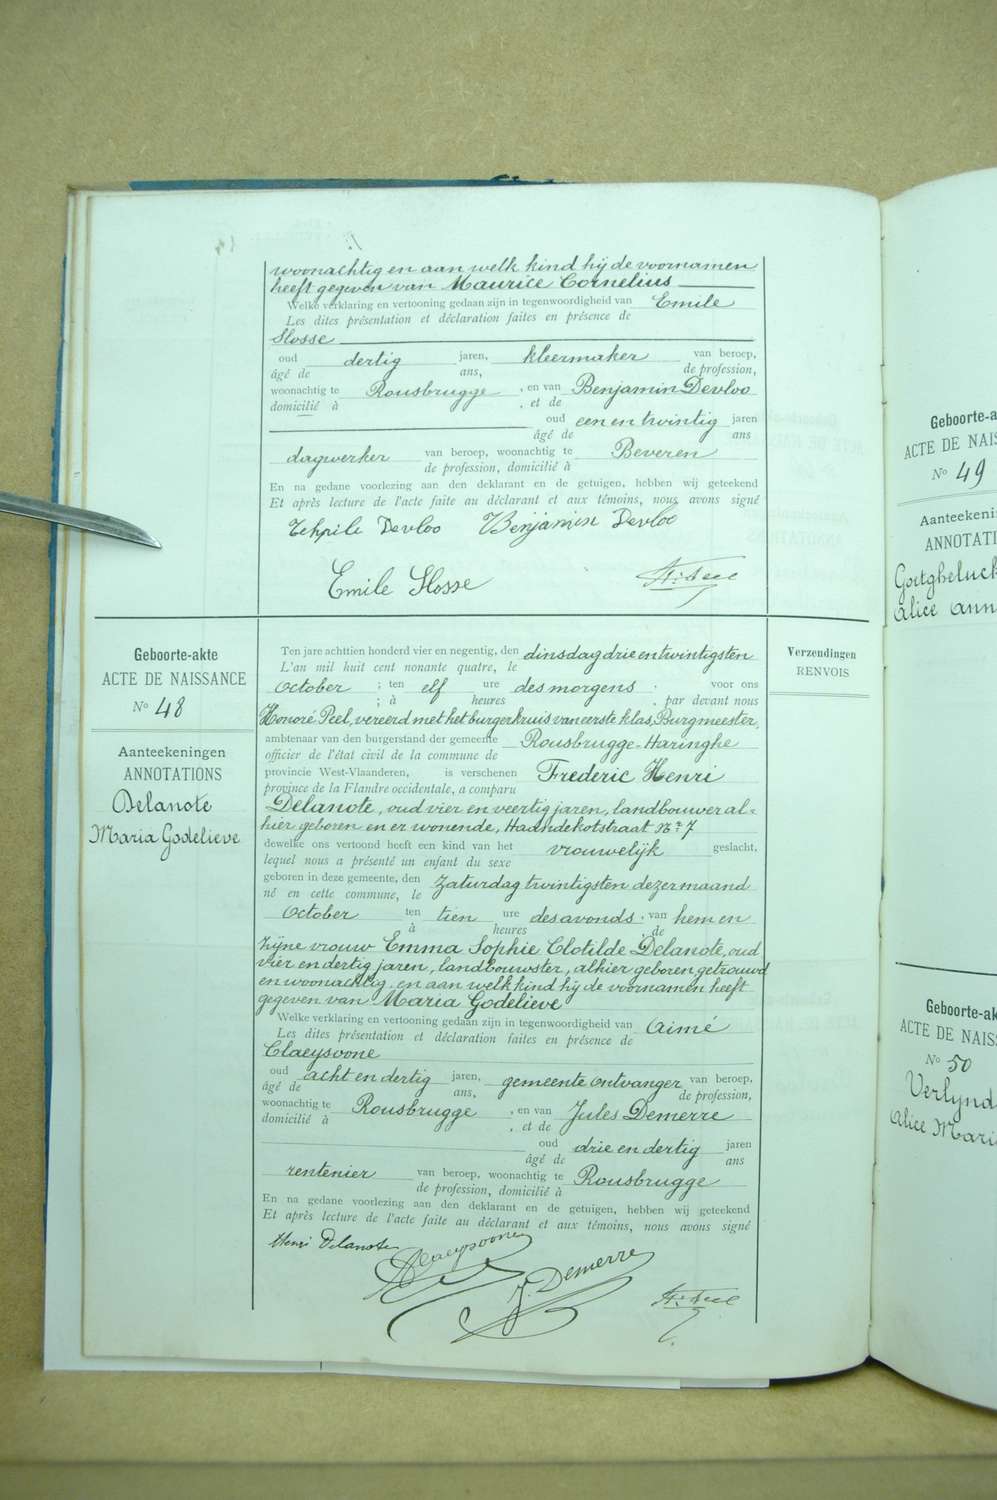 woonachtig en aan welk kind hij de voornamen
heeft gegeven van Maurice Cornelius
Welke verklaring en vertooning gedaan zijn in tegenwoordigheid van Emile
Les dites présentation et déclaration faites en présence de
Slosse
oud dertig jaren, kleermaker van beroep,
âgé de ans, de profession,
woonachtig te Rousbrugge , en van Benjamin Devloo
domicilié à , et de
oud een en twintig jaren
âgé de ans
dagwerker van beroep, woonachtig te Beveren
de profession, domicilié à
En na gedane voorlezing aan den deklarant en de getuigen, hebben wij geteekend
Et après lecture de l'acte faite au déclarant et aux témoins, nous avons signé
Devloo Benjamin Devloo
Emile Slosse
Geboorte-akte
ACTE DE NAISSANCE
No 48
Aanteekeningen
ANNOTATIONS
Delanote
Maria Godelieve
Ten jare achttien honderd vier en negentig, den dinsdag drie en twintigsten
L'an mil huit cent nonante quatre, le
October ; ten elf ure des morgens voor ons
; à heures , par devant nous
Honoré Peel, vereerd met het burgerkruis van eerste klas, Burgmeester,
ambtenaar van den burgerstand der gemeente Rousbrugge-Haringhe
officier de l'état civil de la commune de
provincie West-Vlaanderen, is verschenen Frederic Henri
province de la Flandre occidentale, a comparu
Delanote, oud vier en veertig jaren, landbouwer al-
hier geboren en er wonende, Haandekotstraat Nr 7
dewelke ons vertoond heeft een kind van het vrouwelijk geslacht,
lequel nous a présenté un enfant du sexe
geboren in deze gemeente, den Zaturdag twintigsten dezer maand
né en cette commune, le
October ten tien ure des avonds ; van hem en
à heures de
zijne vrouw Emma Sophie Clotilde Delanote, oud
vier en dertig jaren, landbouwster, alhier geboren, getrouwd
en woonachtig en aan welk kind hij de voornamen heeft
gegeven van Maria Godelieve
Welke verklaring en vertooning gedaan zijn in tegenwoordigheid van Aimé
Les dites présentation et déclaration faites en présence de
Claeysoone
oud acht en dertig jaren, gemeente ontvanger van beroep,
âgé de ans, de profession,
woonachtig te Rousbrugge , en van Jules Demerre
domicilié à , et de
oud drie en dertig jaren
âgé de ans
rentenier van beroep, woonachtig te Rousbrugge
de profession, domicilié à
En na gedane voorlezing aan den deklarant en de getuigen, hebben wij geteekend
Et après lecture de l'acte faite au déclarant et aux témoins, nous avons signé
Henri Delanote Claeysoone
J. Demerre
Verzendingen
RENVOIS
Geboorte-a
ACTE DE NAIS
No 49
Aanteekeni
ANNOTATI
Alice Ann
Geboorte-ak
ACTE DE NAIS
No 50
Verlynd
Alice Mari